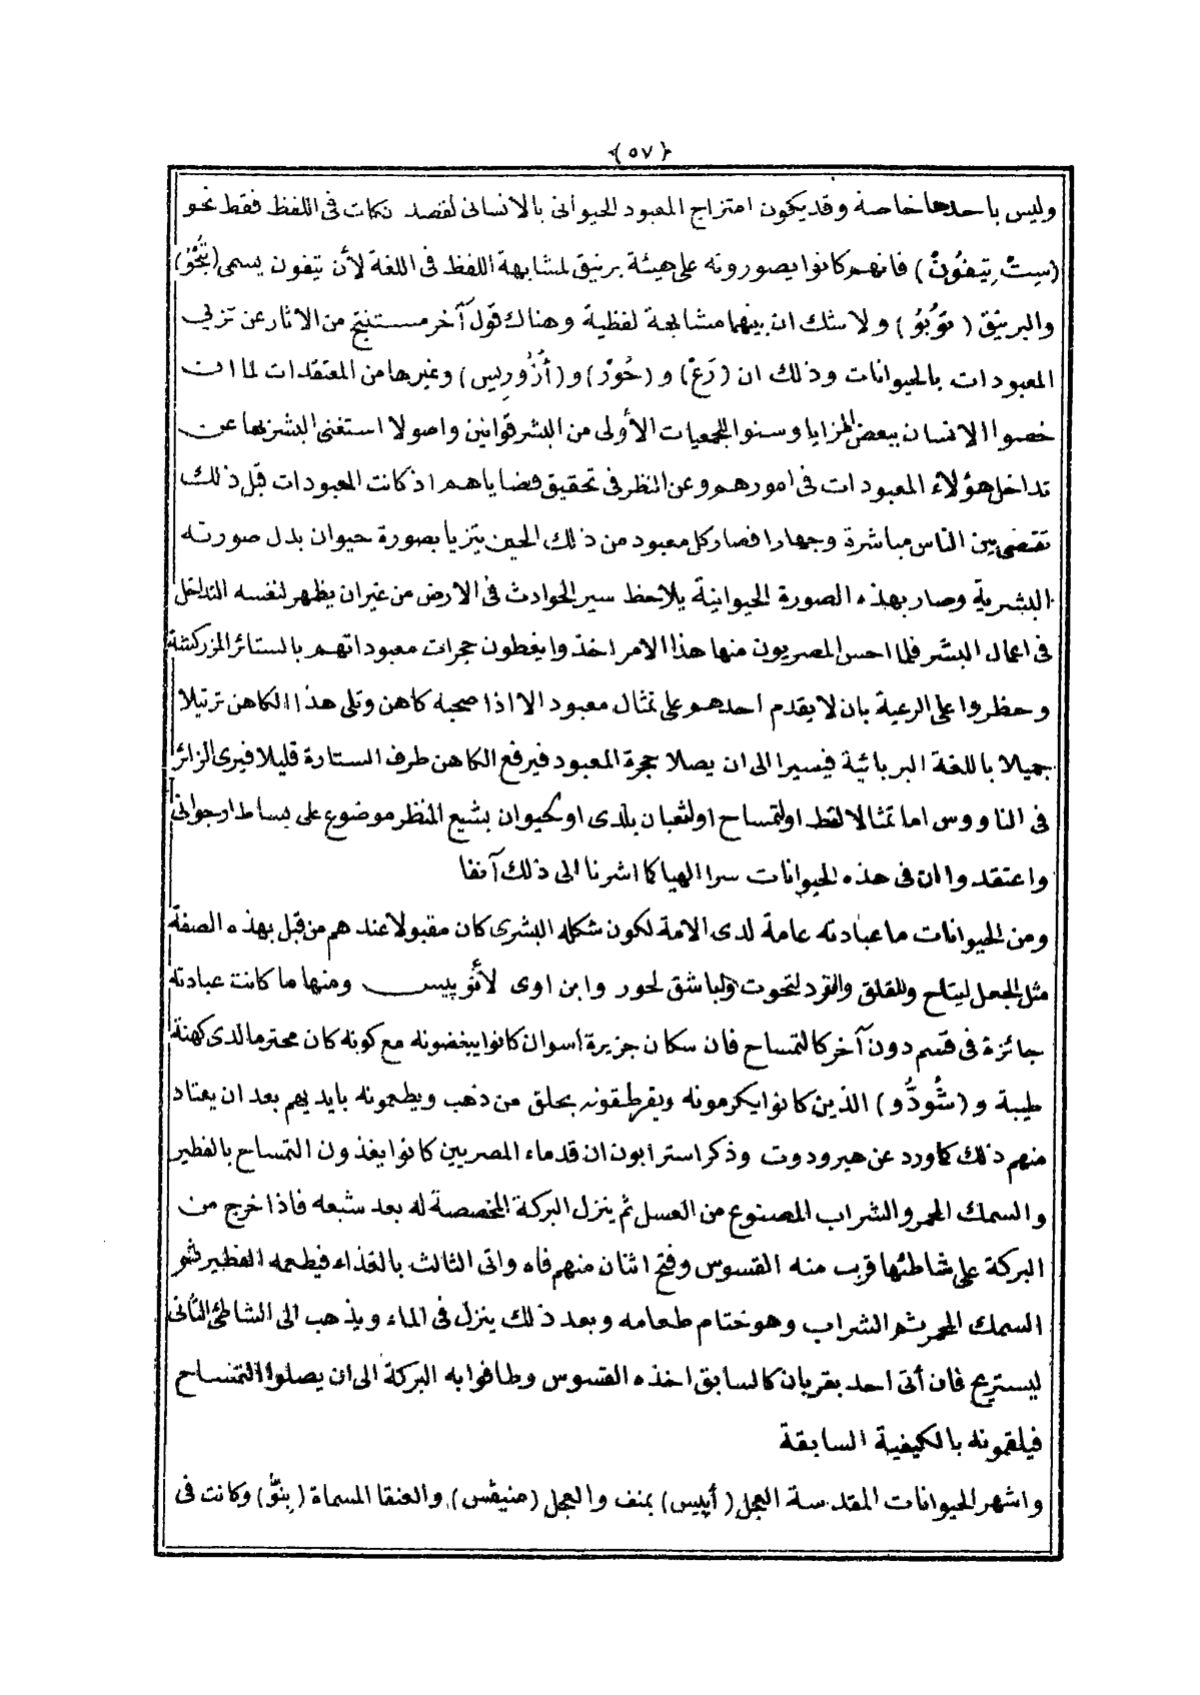 ﴿٥٧﴾
وليس باحدها خاصة وقد يكون امتزاج المعبود الحيوانى بالانسانى لقصد نكات فى اللفظ فقط نحو
(سِتْ تِيفُونْ) فانهم كانوا يصورونه على هيئة برنيق لمشابهة اللفظ فى اللغة لأن تيفون يسمى
والبرنيق (تَوُبُو) ولا شك ان بينهما مشابهة لفظية وهناك قول آخر مستنتج من الاثار عن تزيى
المعبودات بالحيوانات وذلك ان (رَعْ) و (حُورْ) و (أُزُورِيس) وغيرها من المعتقدات لما ان
خصوا الانسان ببعض المزايا وسنوا للجمعيات الأولى من البشر قوانين واصولا استغنى البشر بها عن
تداخل هؤلاء المعبودات فى امورهم وعن النظر فى تحقيق قضاياهم اذ كانت المعبودات قبل ذلك
تقتضى بين الناس مباشرة وجهارا فصار كل معبود من ذلك الحين يتزيا بصورة حيوان بدل صورته
البشرية وصار بهذه الصورة الحيوانية يلاحظ سير الحوادث فى الارض من غيران يظهر لنفسه التداخل
فى اعمال البشر فلما احس المصريون منها هذا الامر اخذوا يغطون حجرات معبوداتهم بالستائر المزركشة
وحظروا على الرعية بان لا يقدم احدهم على تمثال معبود الا اذا صحبه كاهن وتلى هذا الكاهن ترتيلا
جميلا باللغة البربائية فيسيرا الى ان يصلا حجرة المعبود فيرفع الكاهن طرف الستارة قليلا فيرى الزائر
فى الناووس اما تمثالا لقط او لتمساح او لثعبان بلدى او لحيوان بشيع المنظر موضوع على بساط ارجوانى
واعتقدوا ان فى هذه الحيوانات سرا الهيا كما اشرنا الى ذلك آنفا
ومن الحيوانات ما عبادته عامة لدى الامة لكون شكله البشرى كان مقبولا عندهم من قبل بهذه الصفة
مثل الجعل لپتاح واللقلق والقرد لتحوت والباشق لحور وابن اوى لأنُوپيس ومنها ما كانت عبادته
جائزة فى قسم دون آخر كالتمساح فان سكان جزيرة اسوان كانوا يبغضونه مع كونه كان محترما لدى كهنة
طيبة و (شُودُّو) الذين كانوا يكرمونه ويقرطقونه بحلق من ذهب ويطعمونه بايديهم بعد ان يعتاد
منهم ذلك كما ورد عن هيرودوت وذكر استرابون ان قدماء المصريين كانوا يغذون التمساح بالفطير
والسمك المحمر والشراب المصنوع من العسل ثم ينزل البركة المخصصة له بعد شبعه فاذا خرج من
البركة على شاطئها قرب منه القسوس وفتح اثنان منهم فاه واتى الثالث بالغذاء فيطعمه الفطير ثم
السمك المحمر ثم الشراب وهو ختام طعامه وبعد ذلك ينزل فى الماء ويذهب الى الشاطئ الثانى
ليستريح فان أتى احد بقربان كالسابق اخذه القسوس وطافوا به البركة الى ان يصلوا التمساح
فيلقمونه بالكيفية السابقة
واشهر الحيوانات المقدسة العجل (أپيس) بمنف والعجل (منيڤس) والعنقا المسماة (بِنُّو) وكانت فى